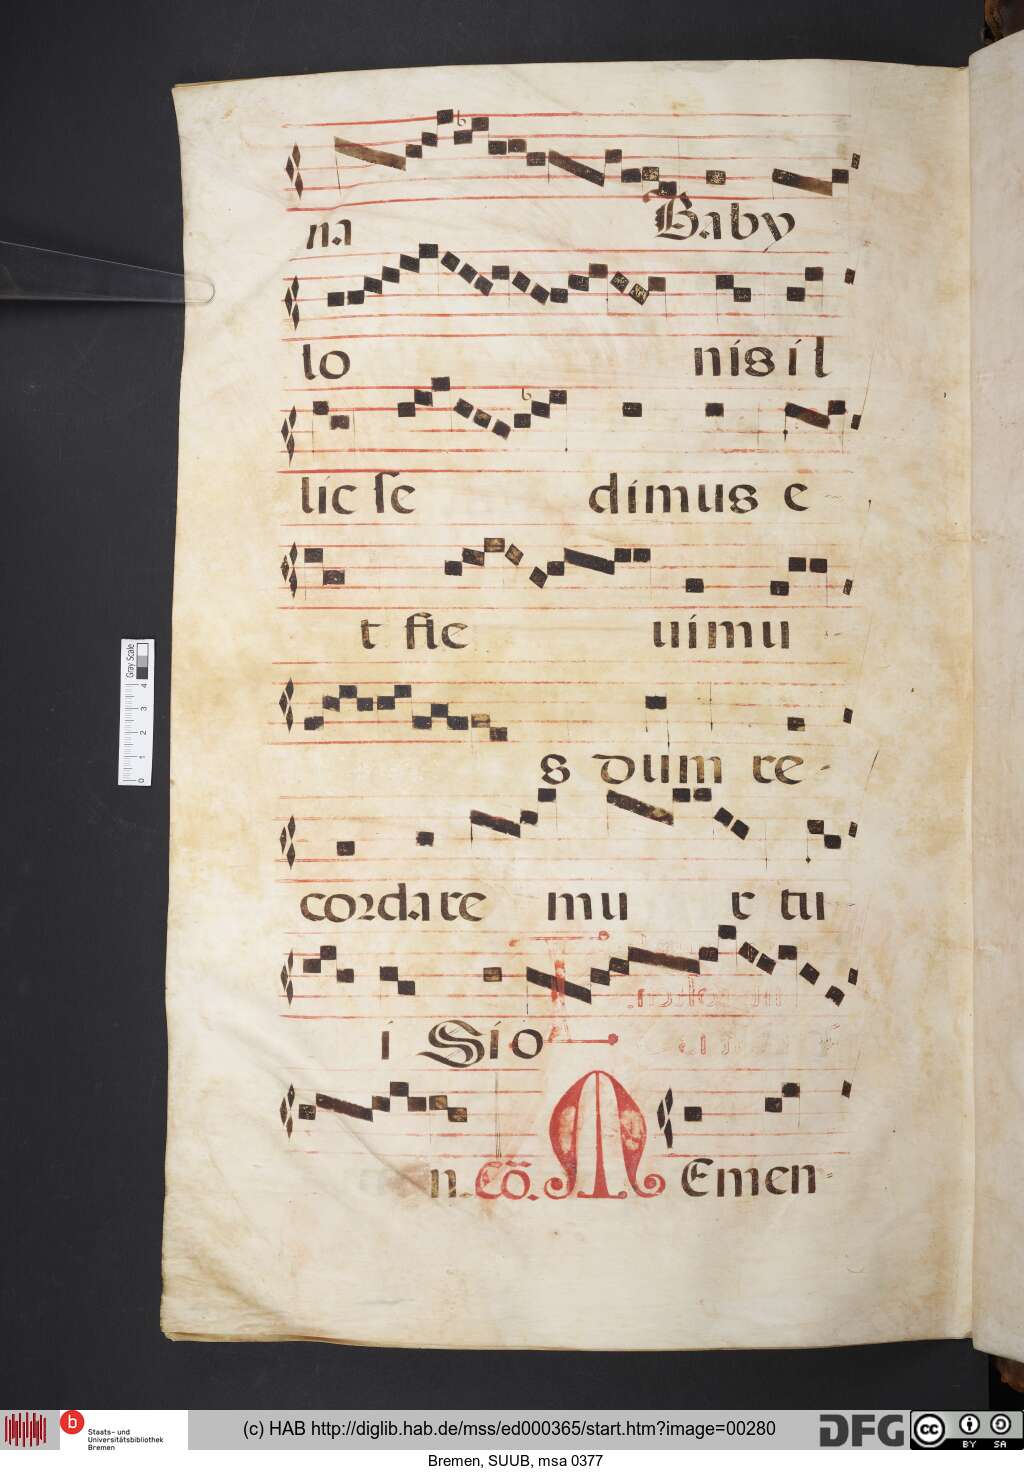 na Baby
lo nis il
lic se dimus e
t fle uimu
s dum re-
cordare mu r tu
i Sio
n. Cō. M Emen=
Gray Scale
4 3 2 1 0
b Staats- und Universitätsbibliothek Bremen
(c) HAB http://diglib.hab.de/mss/ed000365/start.htm?image=00280
DFG
cc BY SA
Bremen, SUUB, msa 0377